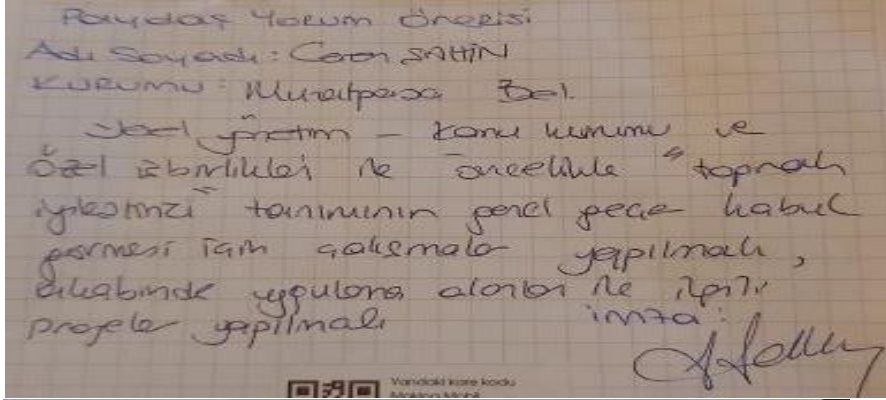 Paydaş Yorum Önerisi
Adı Soyadı: Can ŞAHİN
Kurumu: Muratpaşa Bel.
Yerel yönetim - kamu kurumu ve
özel işbirlikleri ile öncelikle "toprak
iyileştirici" tanımının genel geçer kabul
görmesi için çalışmalar yapılmalı,
akabinde uygulama alanları ile ilgili
projeler yapılmalı imza:
Yandaki kare kodu
Mobil